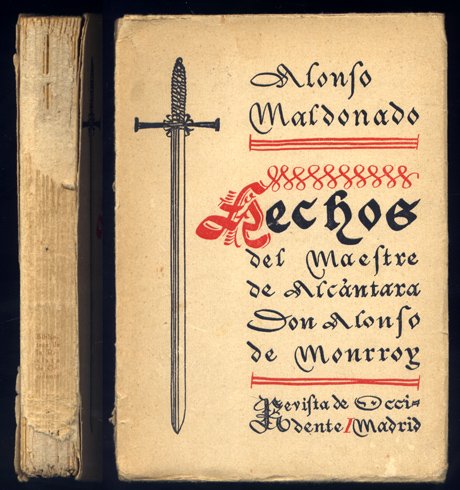 Alonſo
Maldonado
Hechos
del Maeſtre
de Alcántara
Don Alonſo
de Monrroy
Reviſta de Occi-
dente / Madrid